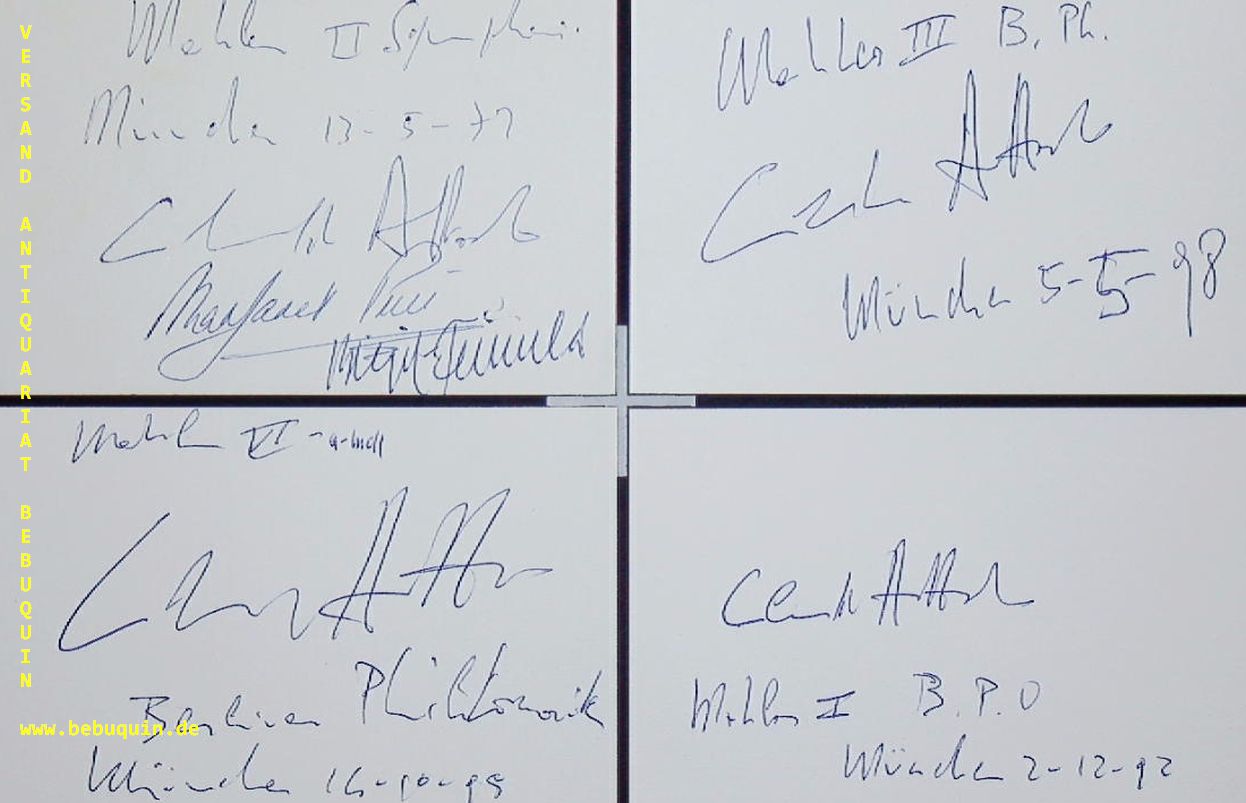 Mahler II Symphonie.
München 13-5-77
Claudio Abbado
Margaret Price
Mahler III B. Ph.
Claudio Abbado
München 5-5-98
Mahler VI - a-moll
Claudio Abbado
Berliner Philharmonik
München
Claudio Abbado
Mahler I B.P.O
München 2-12-92
VERSAND ANTIQUARIAT BEBUQUIN
www.bebuquin.de